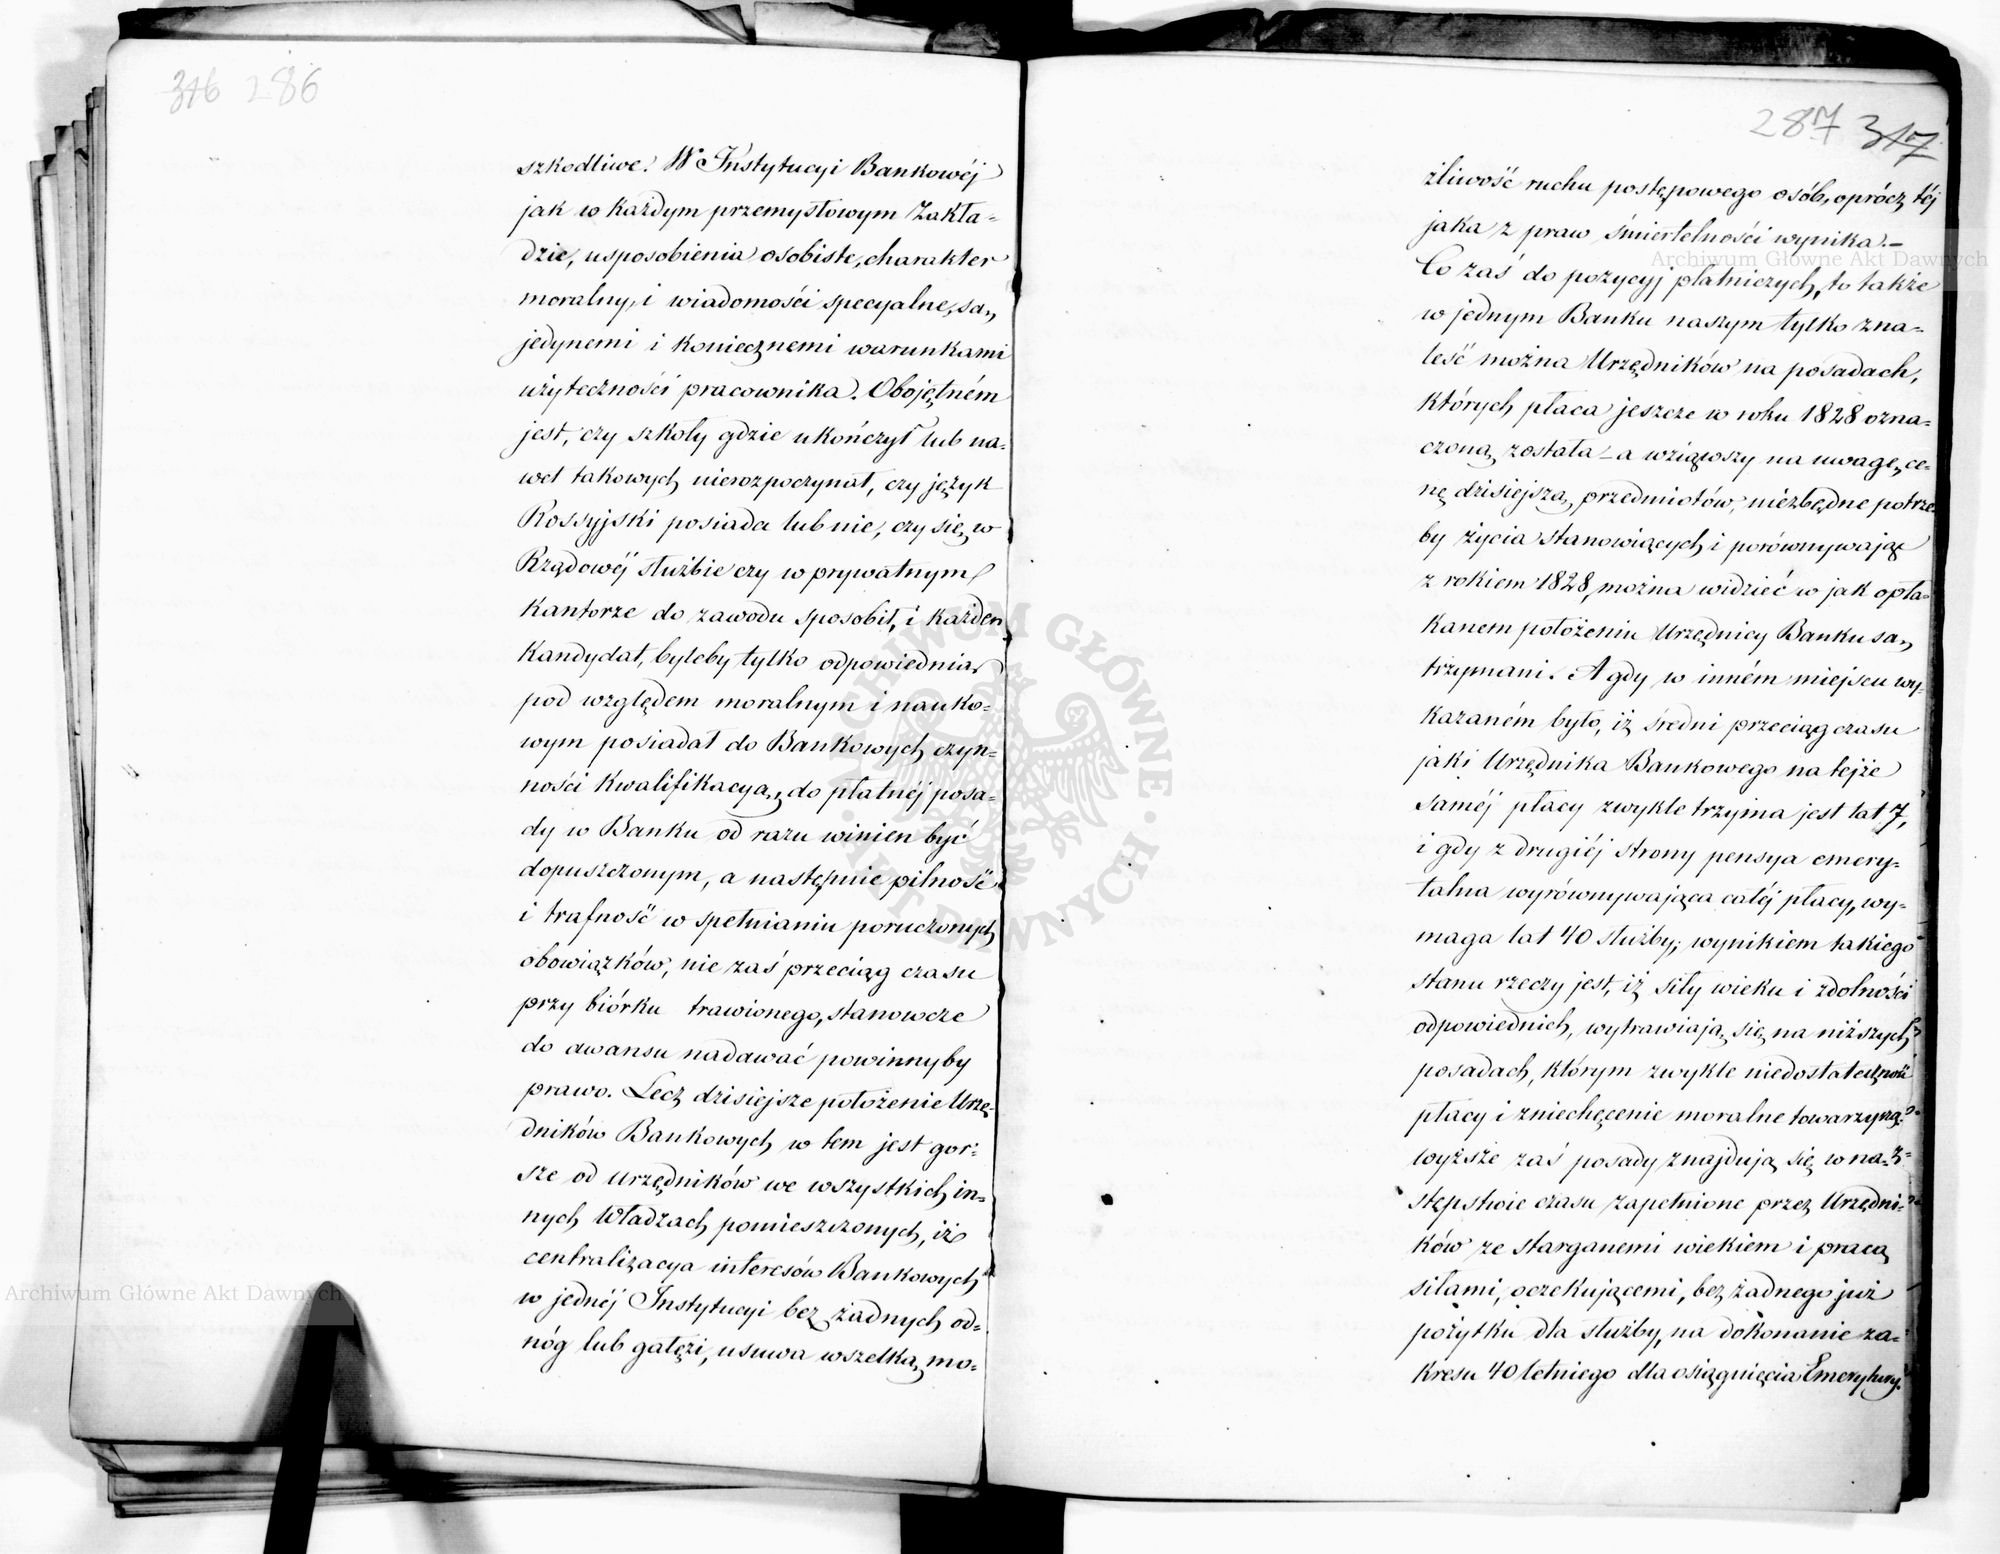 316 286
szkodliwe. W Instytucyi Bankowéj
jak w każdym przemysłowym Zakła-
dzie, usposobienia osobiste, charakter
moralny, i wiadomości specyalne, są,
jedynemi i koniecznemi warunkami
użyteczności pracownika. Obojętném
jest, czy szkoły gdzie ukończył lub na-
wet takowych nierozpoczynał, czy język
Rossyjski posiada lub nie, czy się w
Rządowéj służbie czy w prywatnym
Kantorze do zawodu sposobił, i każden
Kandydat, byleby tylko odpowiednia
pod względem moralnym i nauko-
wym posiadał do Bankowych czyn-
ności Kwalifikacyą, do płatnéj posa-
dy w Banku od razu winien być
dopuszczonym, a następnie pilność
i trafność w spełnianiu poruczonych
obowiązków, nie zaś przeciąg czasu
przy biórku trawionego, stanowcze
do awansu nadawać powinnyby
prawo. Lecz dzisiejsze położenie Urzę-
dników Bankowych w tem jest gor-
sze od urzędników we wszystkich in-
nych Władzach pomieszczonych, iż
centralizacya interesów Bankowych
w jednéj Instytucyi bez żadnych od-
nóg lub gałęzi, usuwa wszelką mo-
287 317
żliwość ruchu postępowego osób, oprócz téj
jaka z praw śmiertelności wynika.—
Co zaś do pozycyj płatniczych, to także
w jednym Banku naszym tylko zna-
leść można Urzędników na posadach,
których płaca jeszcze w roku 1828 ozna-
czoną została — a wziąwszy na uwagę, ce-
nę dzisiejszą przedmiotów, niezbędne potrze-
by życia stanowiących i porównywając
z rokiem 1828, można widzieć w jak opła-
kanem położeniu Urzędnicy Banku są,
trzymani. A gdy w inném miejscu wy-
kazaném było, iż średni przeciąg czasu
jaki Urzędnika Bankowego na tejże
saméj płacy zwykle trzyma jest lat 7,
i gdy z drugiéj strony pensya emery-
talna wyrównywająca całéj płacy, wy-
maga lat 40 służby; wynikiem takiego
stanu rzeczy jest, iż siły wieku i zdolności
odpowiednich, wytrawiają się na niższych
posadach, którym zwykle niedostateczność
płacy i zniechęcenie moralne towarzyszą
wyższe zaś posady znajdują się w na-
stępstwie czasu zapełnione przez Urzędni-
ków ze starganemi wiekiem i pracą
siłami, oczekującemi, bez żadnego już
pożytku dla służby, na dokonanie za-
kresu 40 letniego dla osiągnięcia Emerytury.
Archiwum Główne Akt Dawnych
Archiwum Główne Akt Dawnych
ARCHIWUM GŁÓWNE AKT DAWNYCH